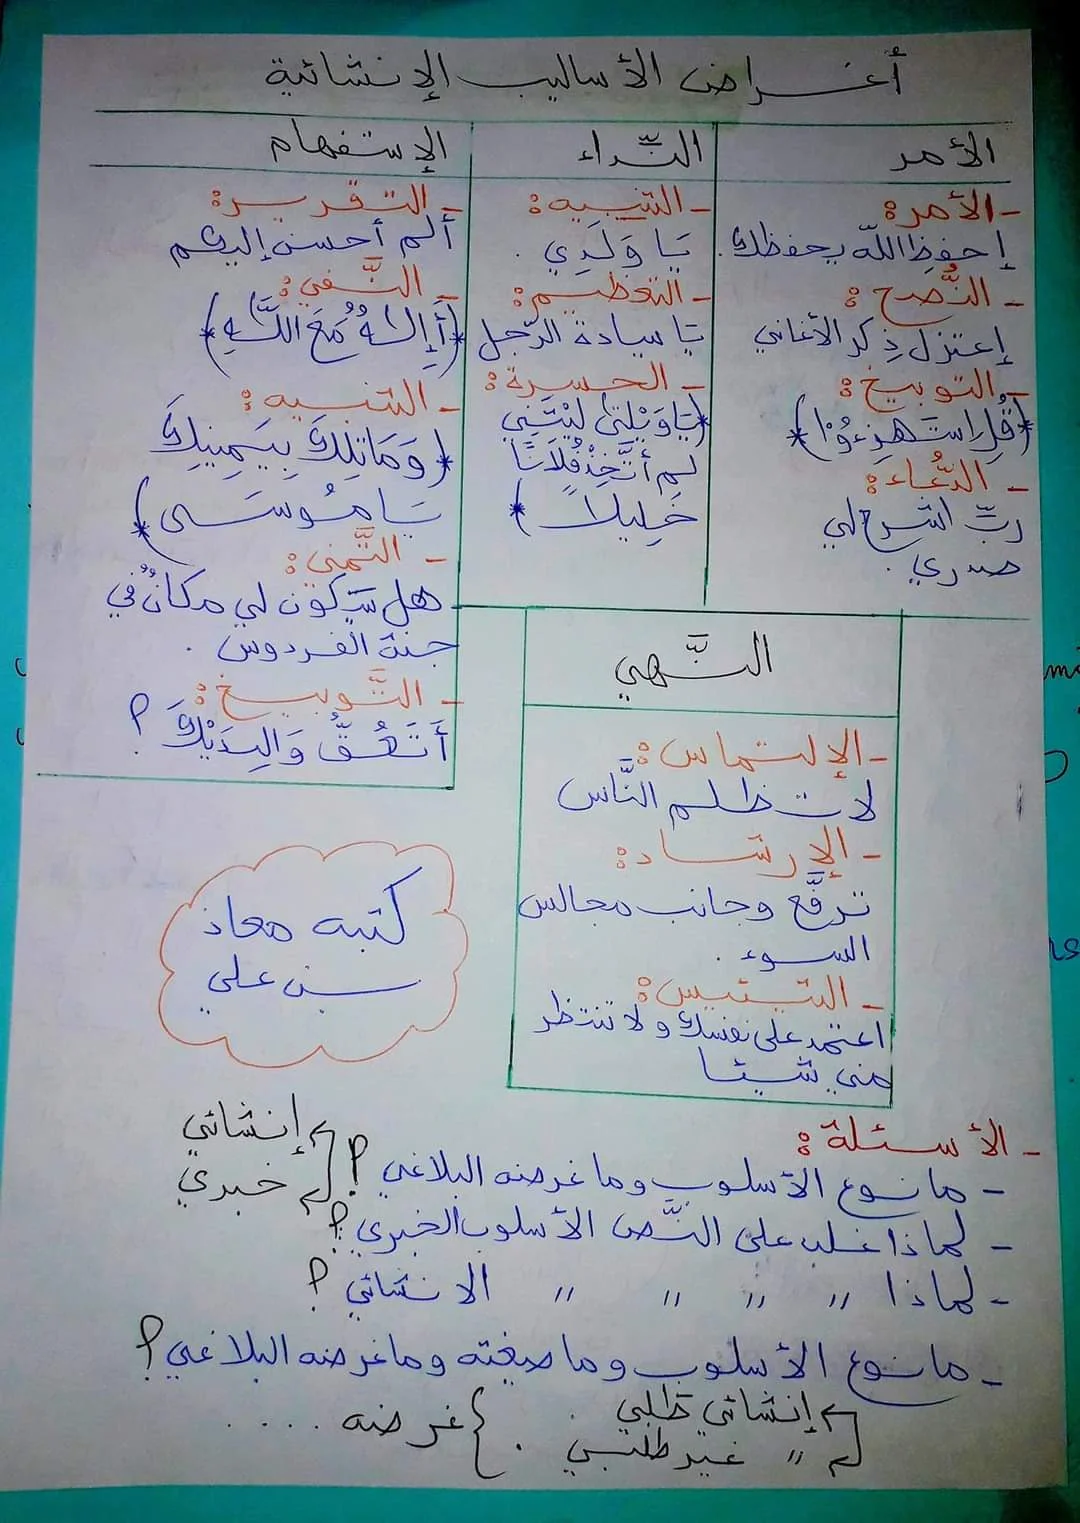 أغراض الأساليب الإنشائية
الأمر
- الأمر:
إحفظ اللّه يحفظك.
- النُّصح:
إعتزل ذِكر الأغاني
- التوبيخ:
﴿قُلِ اسْتَهْزِءُوْا﴾
- الدُّعاء:
ربِّ اشرح لي
صدري.
النِّداء
- التنبيه:
يَا وَلَدِي.
- التعظيم:
يا سيادة الرّجل
- الحسرة:
﴿يَاوَيْلَتَىٰ لَيْتَنِي
لم أتَّخِذْ فُلَانًا
خَلِيلًا﴾
الإستفهام
- التقرير:
ألم أحسن إليكم
- النَّفي:
﴿أَإِلَٰهٌ مَعَ اللَّهِ﴾
- التنبيه:
﴿وَمَا تِلْكَ بِيَمِينِكَ
يَا مُوسَى﴾
- التَّمني:
هل سَيكون لي مكانٌ في
جنة الفردوس.
- التَّوبيخ:
أَتَعُقُّ وَالِدَيْكَ؟
النَّهي
- الإلتماس:
لا تظلم النَّاس
- الإرشاد:
ترفَّع وجانب مجالس
السوء.
- التيئيس:
اعتمد على نفسك ولا تنتظر
مني شيئا
كتبه معاذ
بن علي
- الأسئلة:
- ما نوع الأسلوب وما غرضه البلاغي؟
إنشائي
خبري
- لماذا غلب على النَّص الأسلوب الخبري؟
- لماذا " " " " الانشائي؟
- ما نوع الأسلوب وما صيغته وما غرضه البلاغي؟
إنشائي طلبي . } غرضه ....
" غير طلبي .